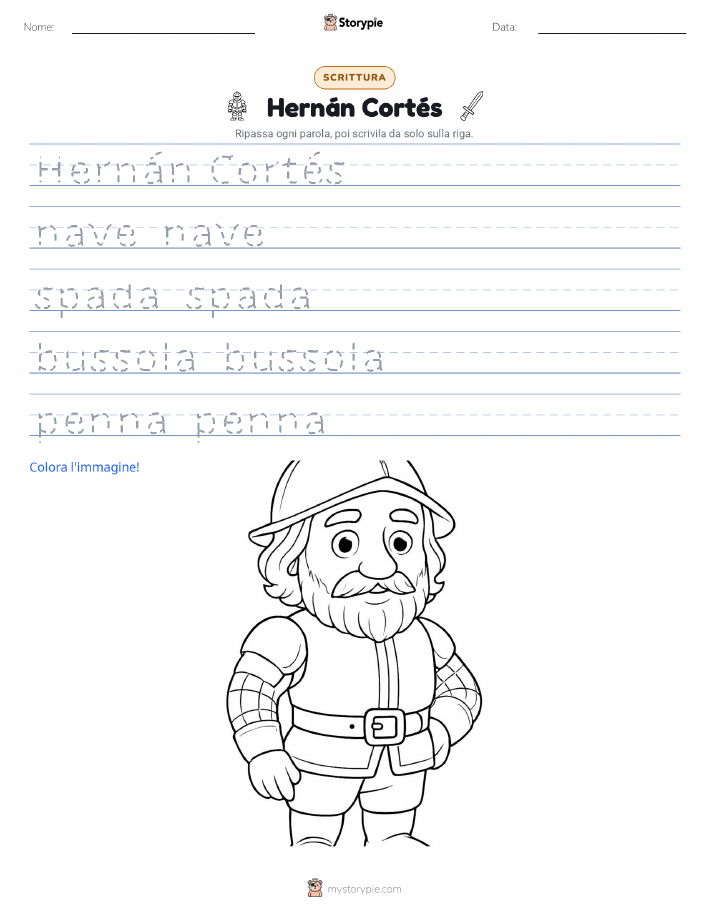 Nome:
Storypie
Data:
SCRITTURA
Hernán Cortés
Ripassa ogni parola, poi scrivila da solo sulla riga.
Hernán Cortés
nave nave
spada spada
bussola bussola
penna penna
Colora l'immagine!
mystorypie.com